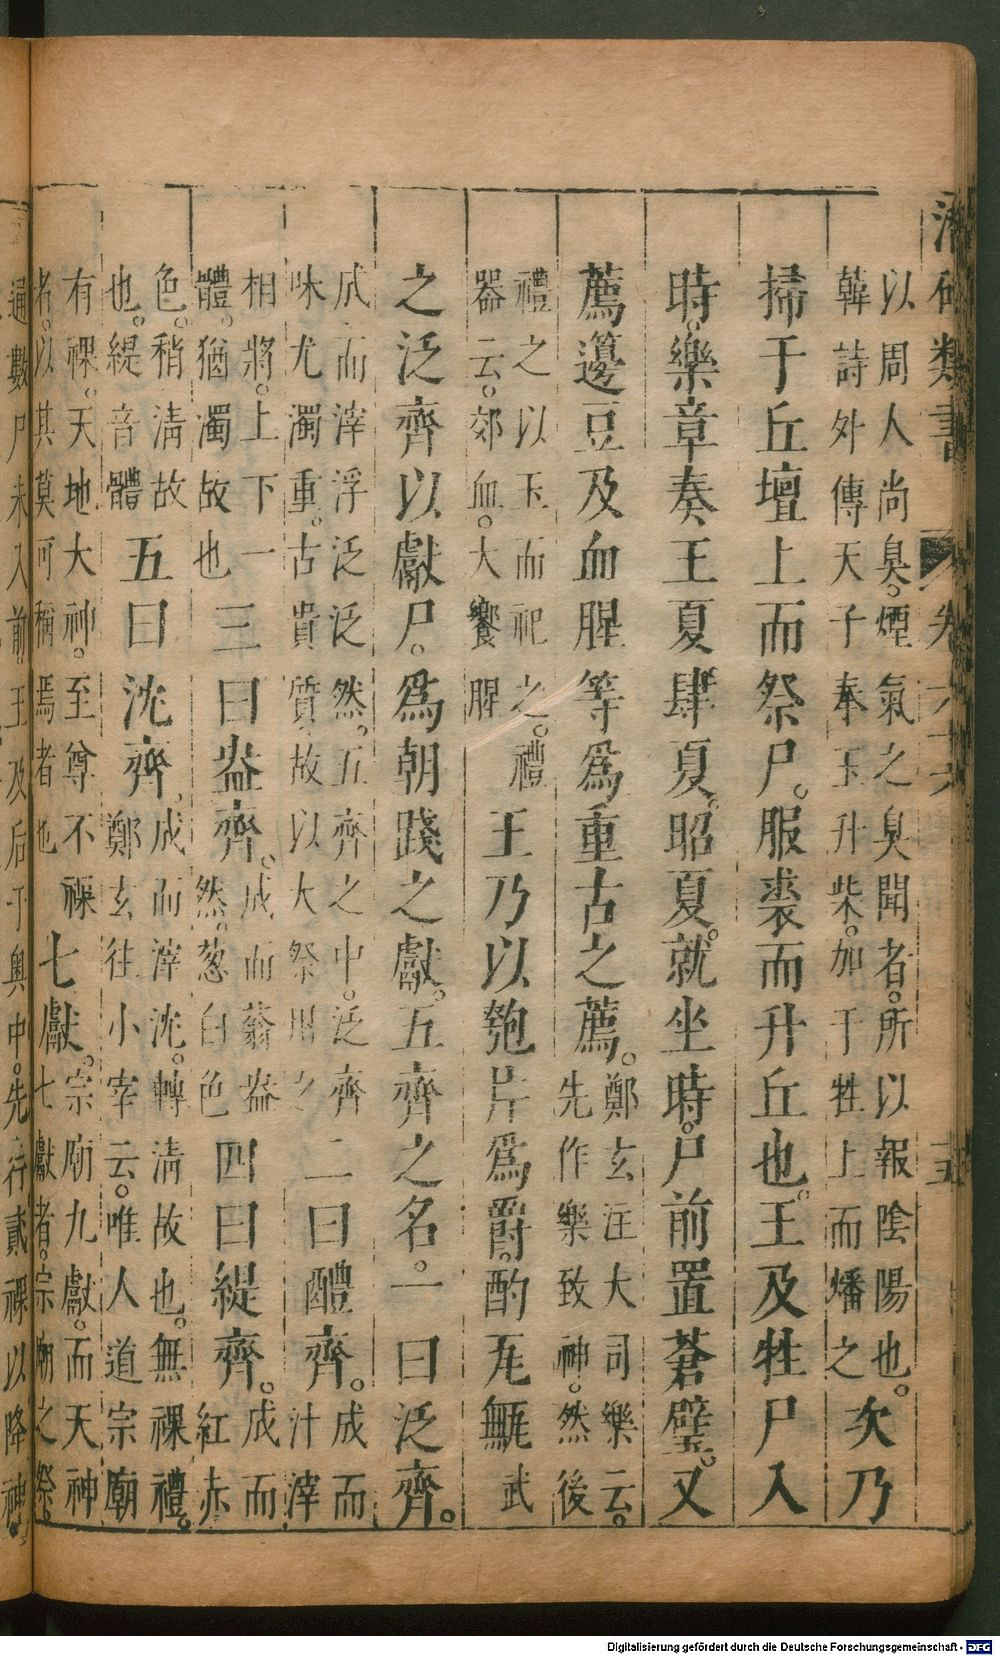 潛確類書 卷六十六 十五
以周人尚臭。煙氣之臭聞者。所以報陰陽也。
韓詩外傳天子奉玉升柴。加于牲上而燔之
次乃
掃于丘壇上而祭尸。服裘而升丘也。王及牲尸入
時。樂章奏王夏肆夏。昭夏。就坐時。尸前置蒼璧。又
薦籩豆及血腥等爲重古之薦。
鄭玄注大司樂云。
先作樂致神。然後
禮之以玉而祀之。禮
器云。郊血。大饗腥
王乃以匏片爲爵。酌瓦甒武
之泛齊以獻尸。爲朝踐之獻。五齊之名。一曰泛齊。
成而滓浮泛泛然。五齊之中。泛齊
味尤濁重。古貴質。故以大祭用之
二曰醴齊。
成而
汁滓
相將。上下一
體。猶濁故也
三曰盎齊。
成而蓊盎
然。葱白色
四曰緹齊。
成而
紅赤
色。稍清故
也。緹音體
五曰沈齊。
成而滓沈。轉清故也。無祼禮。
鄭玄往小宰云。唯人道宗廟
有祼。天地大神。至尊不祼
者。以其莫可稱焉者也
七獻。
宗廟九獻。而天神
七獻者。宗廟之祭。
通數尸未入前王及后于奧中。先行貳祼以降神。
Digitalisierung gefördert durch die Deutsche Forschungsgemeinschaft - DFG